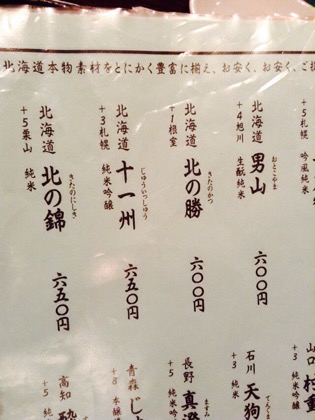 北海道本物素材をとにかく豊富に揃え、お安く、お安く、ご提
+5札幌
吟風純米
北海道
+4旭川
生酛純米
男山
おとこやま
六〇〇円
北海道
+1根室
北の勝
きたのかつ
六〇〇円
北海道
+3札幌
純米吟醸
十一州
じゅういっしゅう
六五〇円
北海道
+5栗山
純米
北の錦
きたのにしき
六五〇円
山口
+3
石川
+3
純米
天狗
長野
+5
純米吟
真澄
ますみ
青森
+8
本醸
じょ
高知
+5
純米
酔